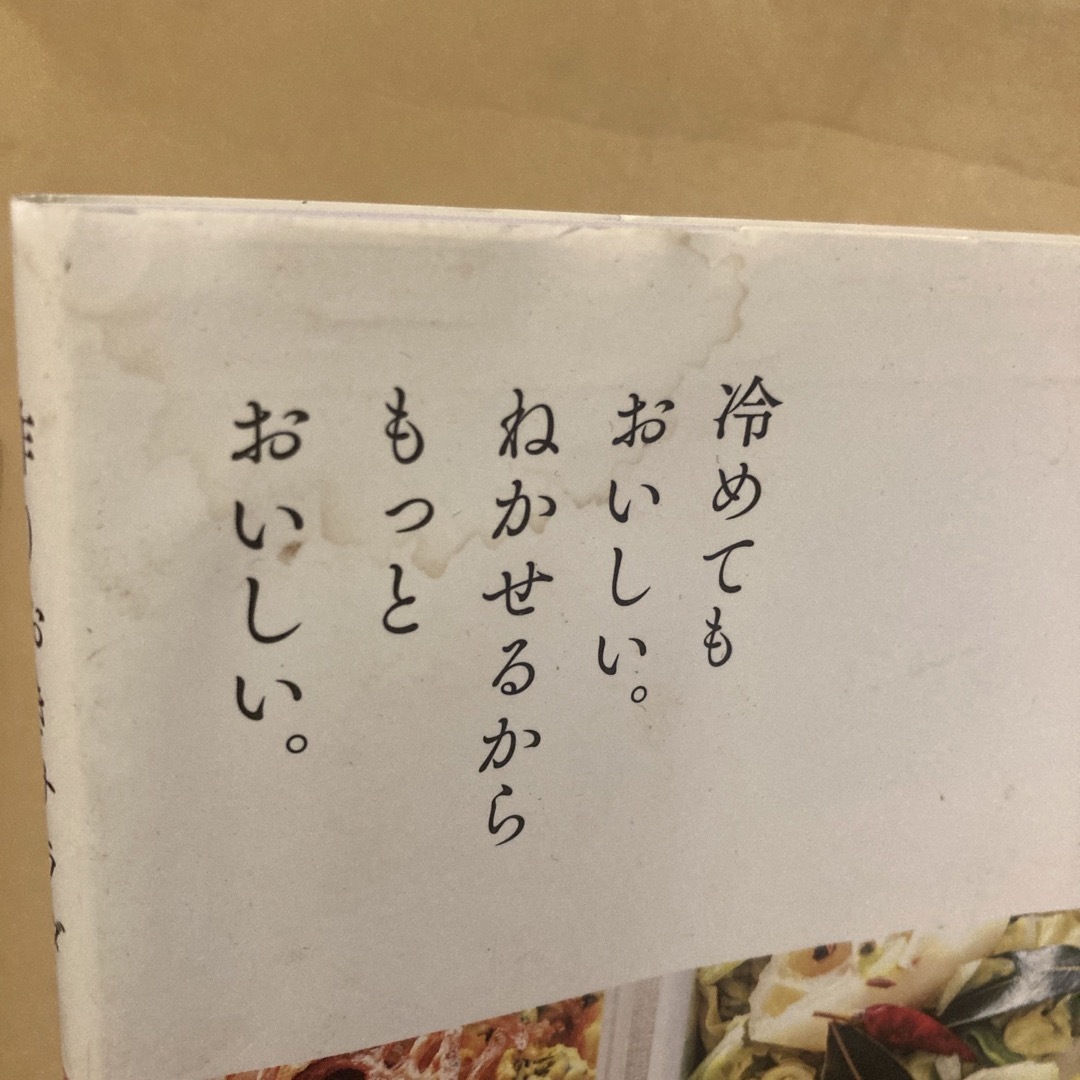 冷めても
おいしい。
ねかせるから
もっと
おいしい。